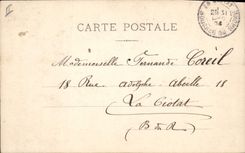 CARTE POSTALE
Mademoiselle Fernande Coreil
18 Rue Adolphe Abeille 18
La Ciotat
(B du R)